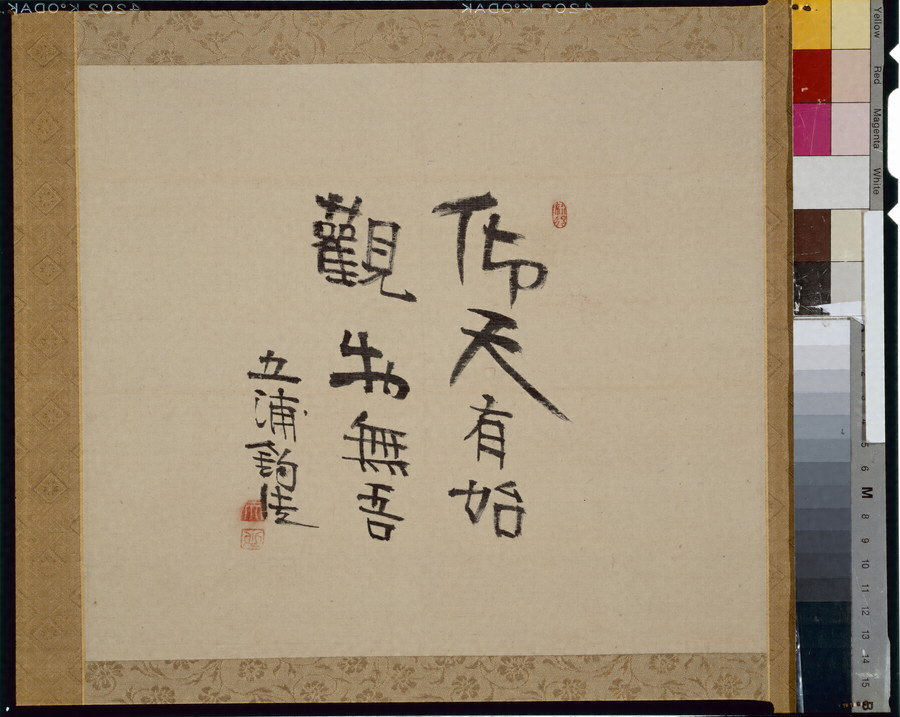 仰天有始
觀物無吾
五浦釣徒
KODAK
KODAK
Yellow
Red
Magenta
White
6
M
8
9
10
11
12
13
14
15
B